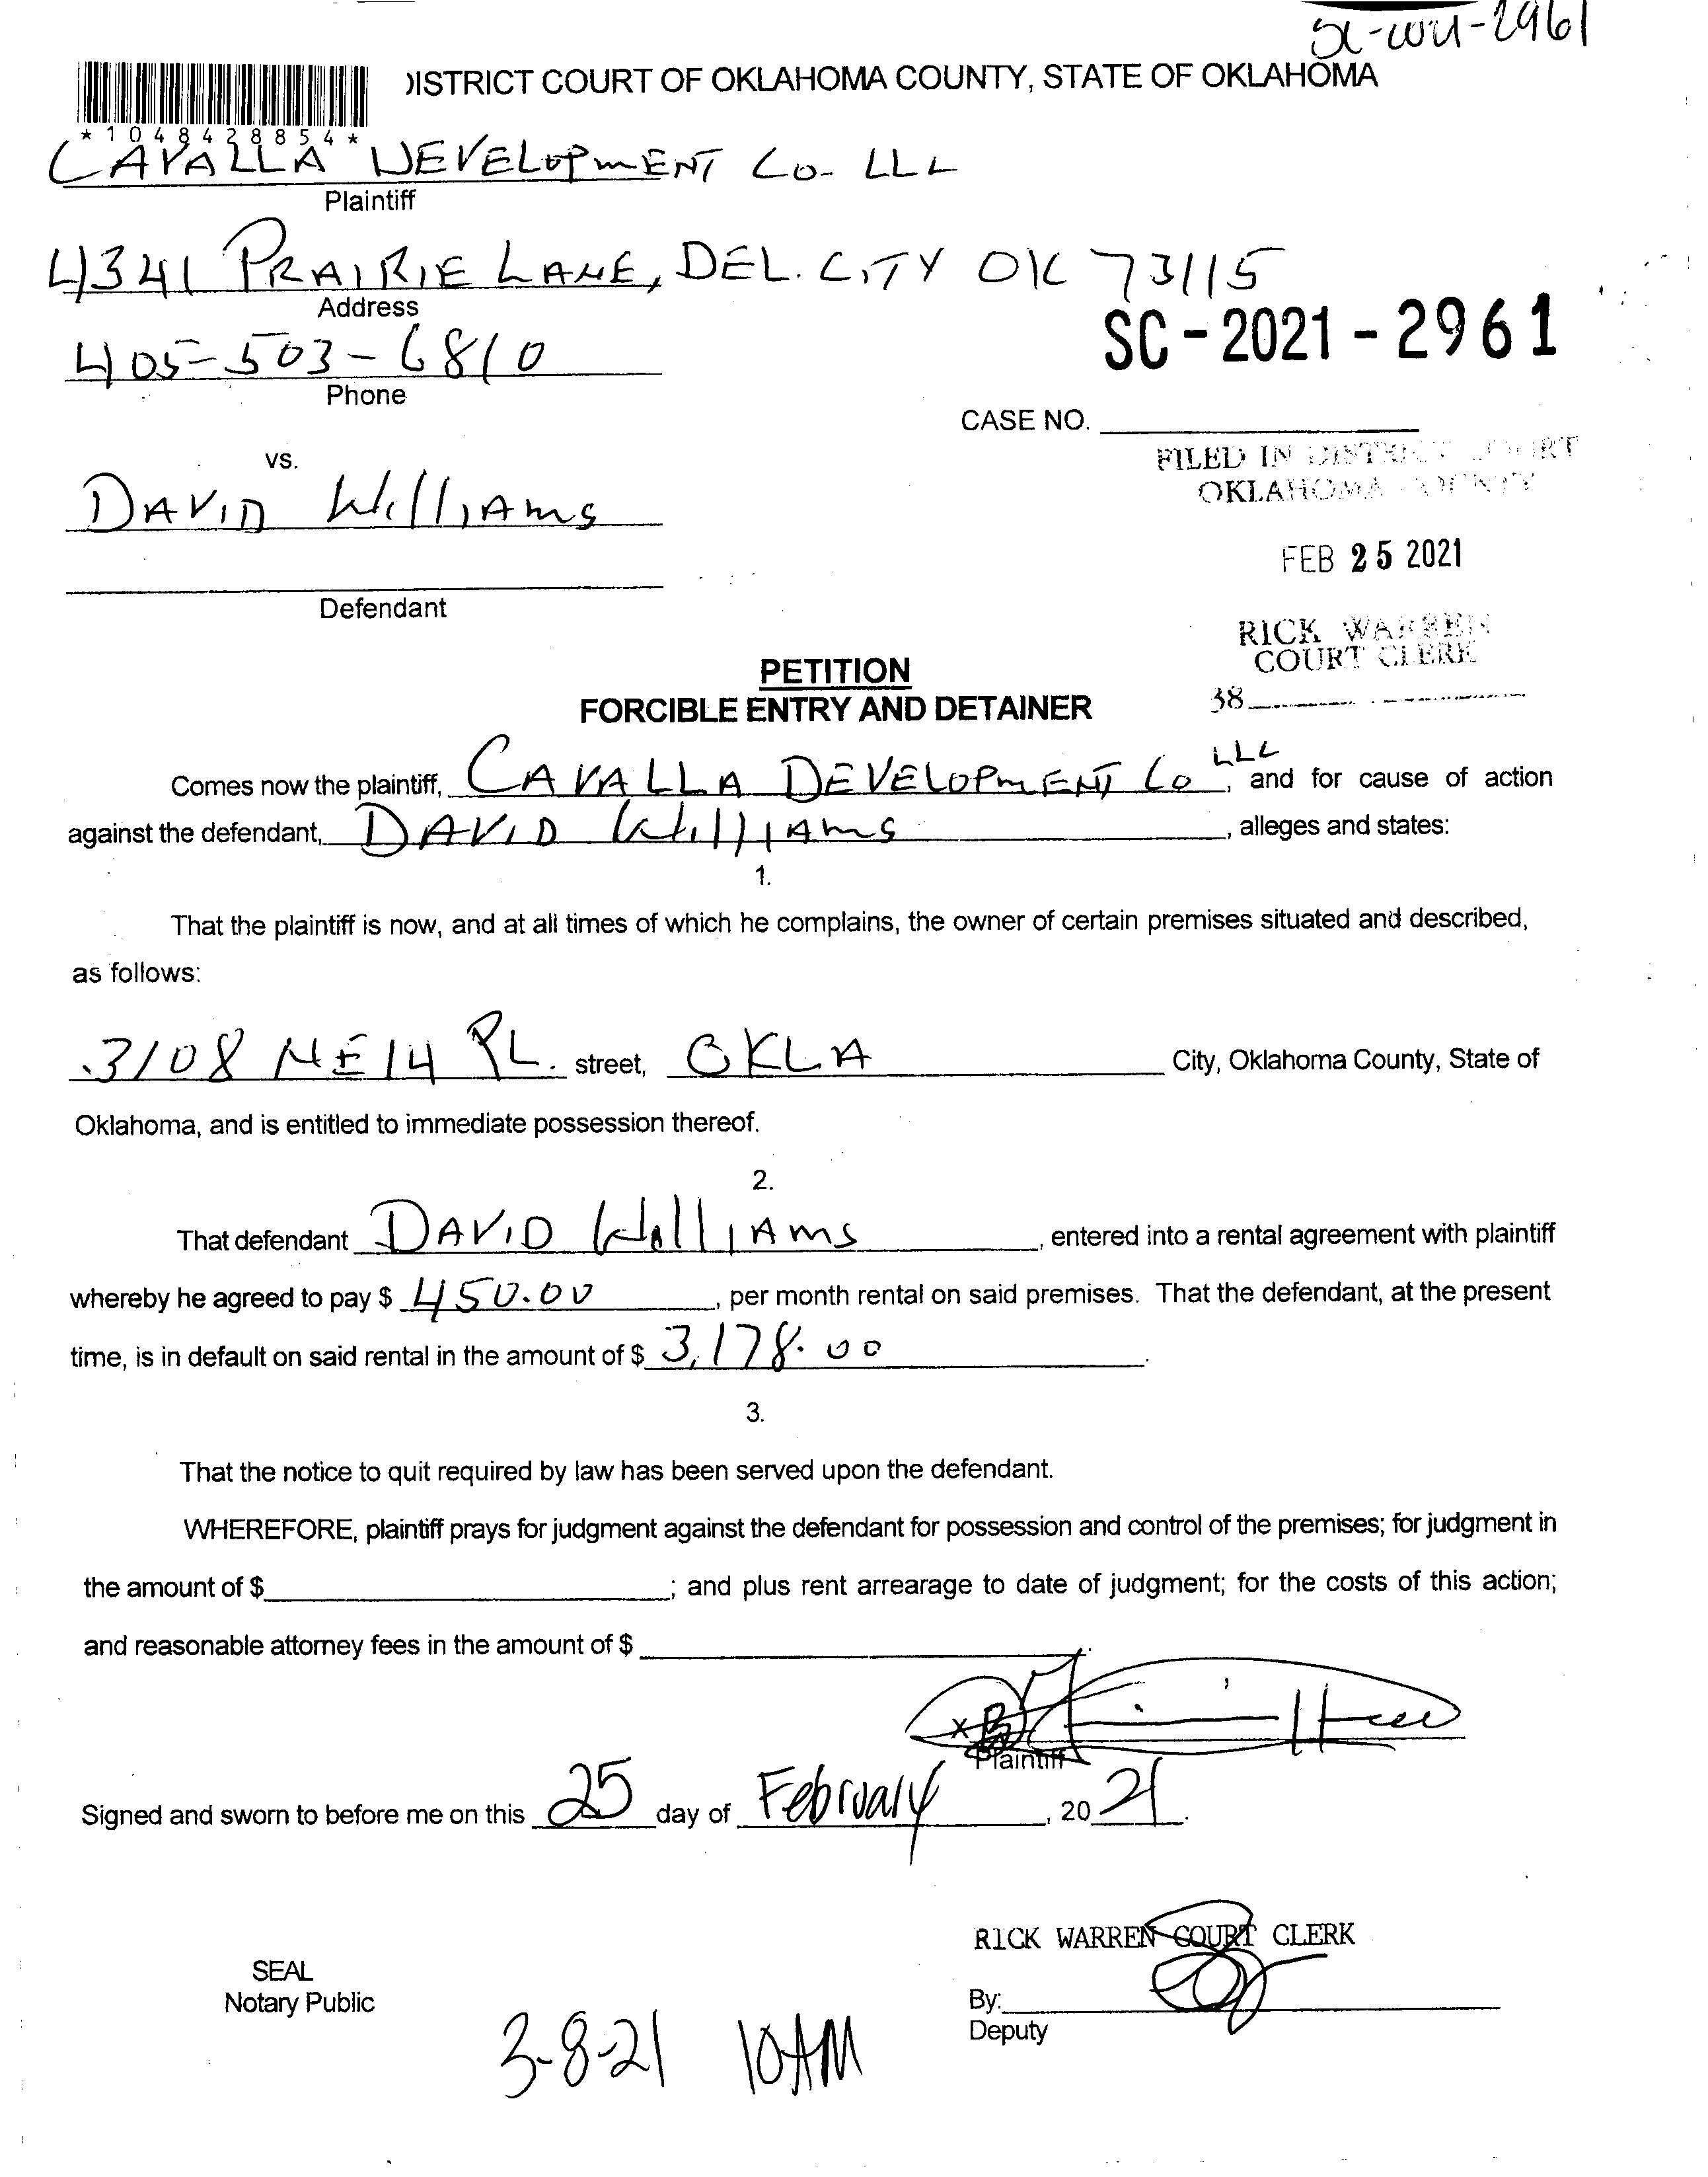 SC-2021-2961
DISTRICT COURT OF OKLAHOMA COUNTY, STATE OF OKLAHOMA
*1048428854*
CAVALLA DEVELOPMENT CO. LLC
Plaintiff
4341 PRAIRIE LANE, DEL. CITY OK 73115
Address
405-503-6810
Phone
SC-2021-2961
CASE NO.
vs.
FILED IN DISTRICT COURT
OKLAHOMA COUNTY
DAVID WilliAms
FEB 25 2021
Defendant
RICK WARREN
COURT CLERK
38
PETITION
FORCIBLE ENTRY AND DETAINER
Comes now the plaintiff, CAVALLA DEVELOPMENT CO LLC, and for cause of action
against the defendant, DAVID WilliAms, alleges and states:
1.
That the plaintiff is now, and at all times of which he complains, the owner of certain premises situated and described,
as follows:
3108 NE 14 PL. street, OKLA City, Oklahoma County, State of
Oklahoma, and is entitled to immediate possession thereof.
2.
That defendant DAVID WilliAms, entered into a rental agreement with plaintiff
whereby he agreed to pay $ 450.00, per month rental on said premises. That the defendant, at the present
time, is in default on said rental in the amount of $ 3,178.00.
3.
That the notice to quit required by law has been served upon the defendant.
WHEREFORE, plaintiff prays for judgment against the defendant for possession and control of the premises; for judgment in
the amount of $; and plus rent arrearage to date of judgment; for the costs of this action;
and reasonable attorney fees in the amount of $.
X
Plaintiff
Signed and sworn to before me on this 25 day of February, 2021.
RICK WARREN COURT CLERK
SEAL
Notary Public
By:
Deputy
3-8-21 10AM